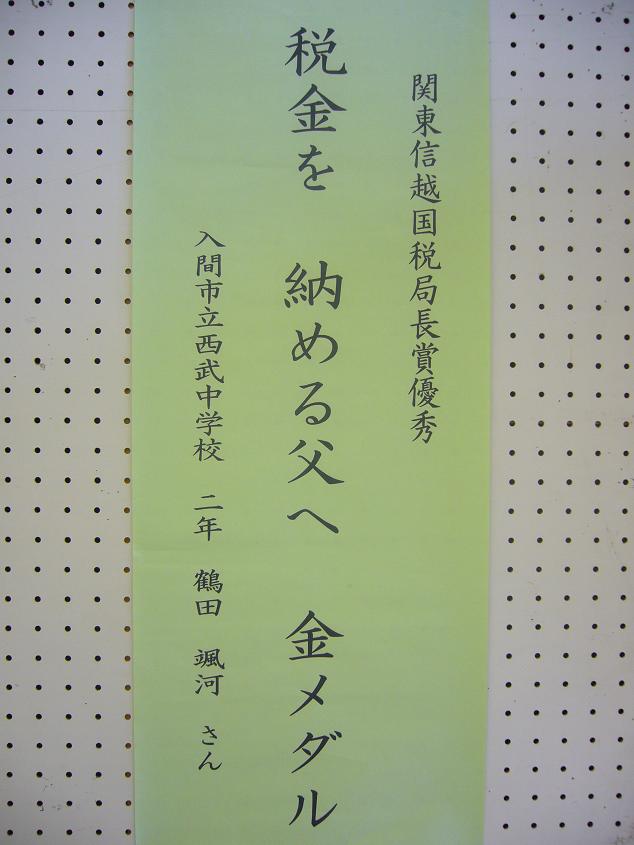 関東信越国税局長賞優秀
税金を 納める父へ 金メダル
入間市立西武中学校 二年 鶴田 颯河 さん